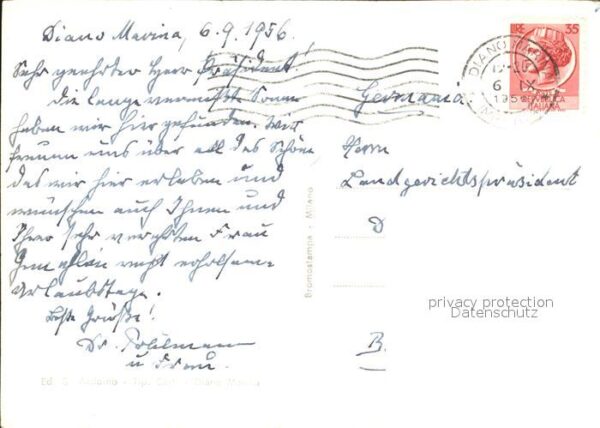 Diano Marina, 6.9.1956.
Sehr geehrter Herr Präsident!
Die lange vermisste Sonne
haben wir hier gefunden. Wir
freuen uns über all das Schöne
das wir hier erleben und
wünschen auch Ihnen und
Ihrer sehr verehrten Frau
Gemahlin recht erholsame
Urlaubstage.
Beste Grüße!
Dr.
u Frau.
Germania
Herrn
Landgerichtspräsident
D
B.
35
DIANO
6 IX
195
REPUBBLICA
ITALIANA
Bromostampa - Milano
privacy protection
Datenschutz
Ed. - Tip. - Diano Marina